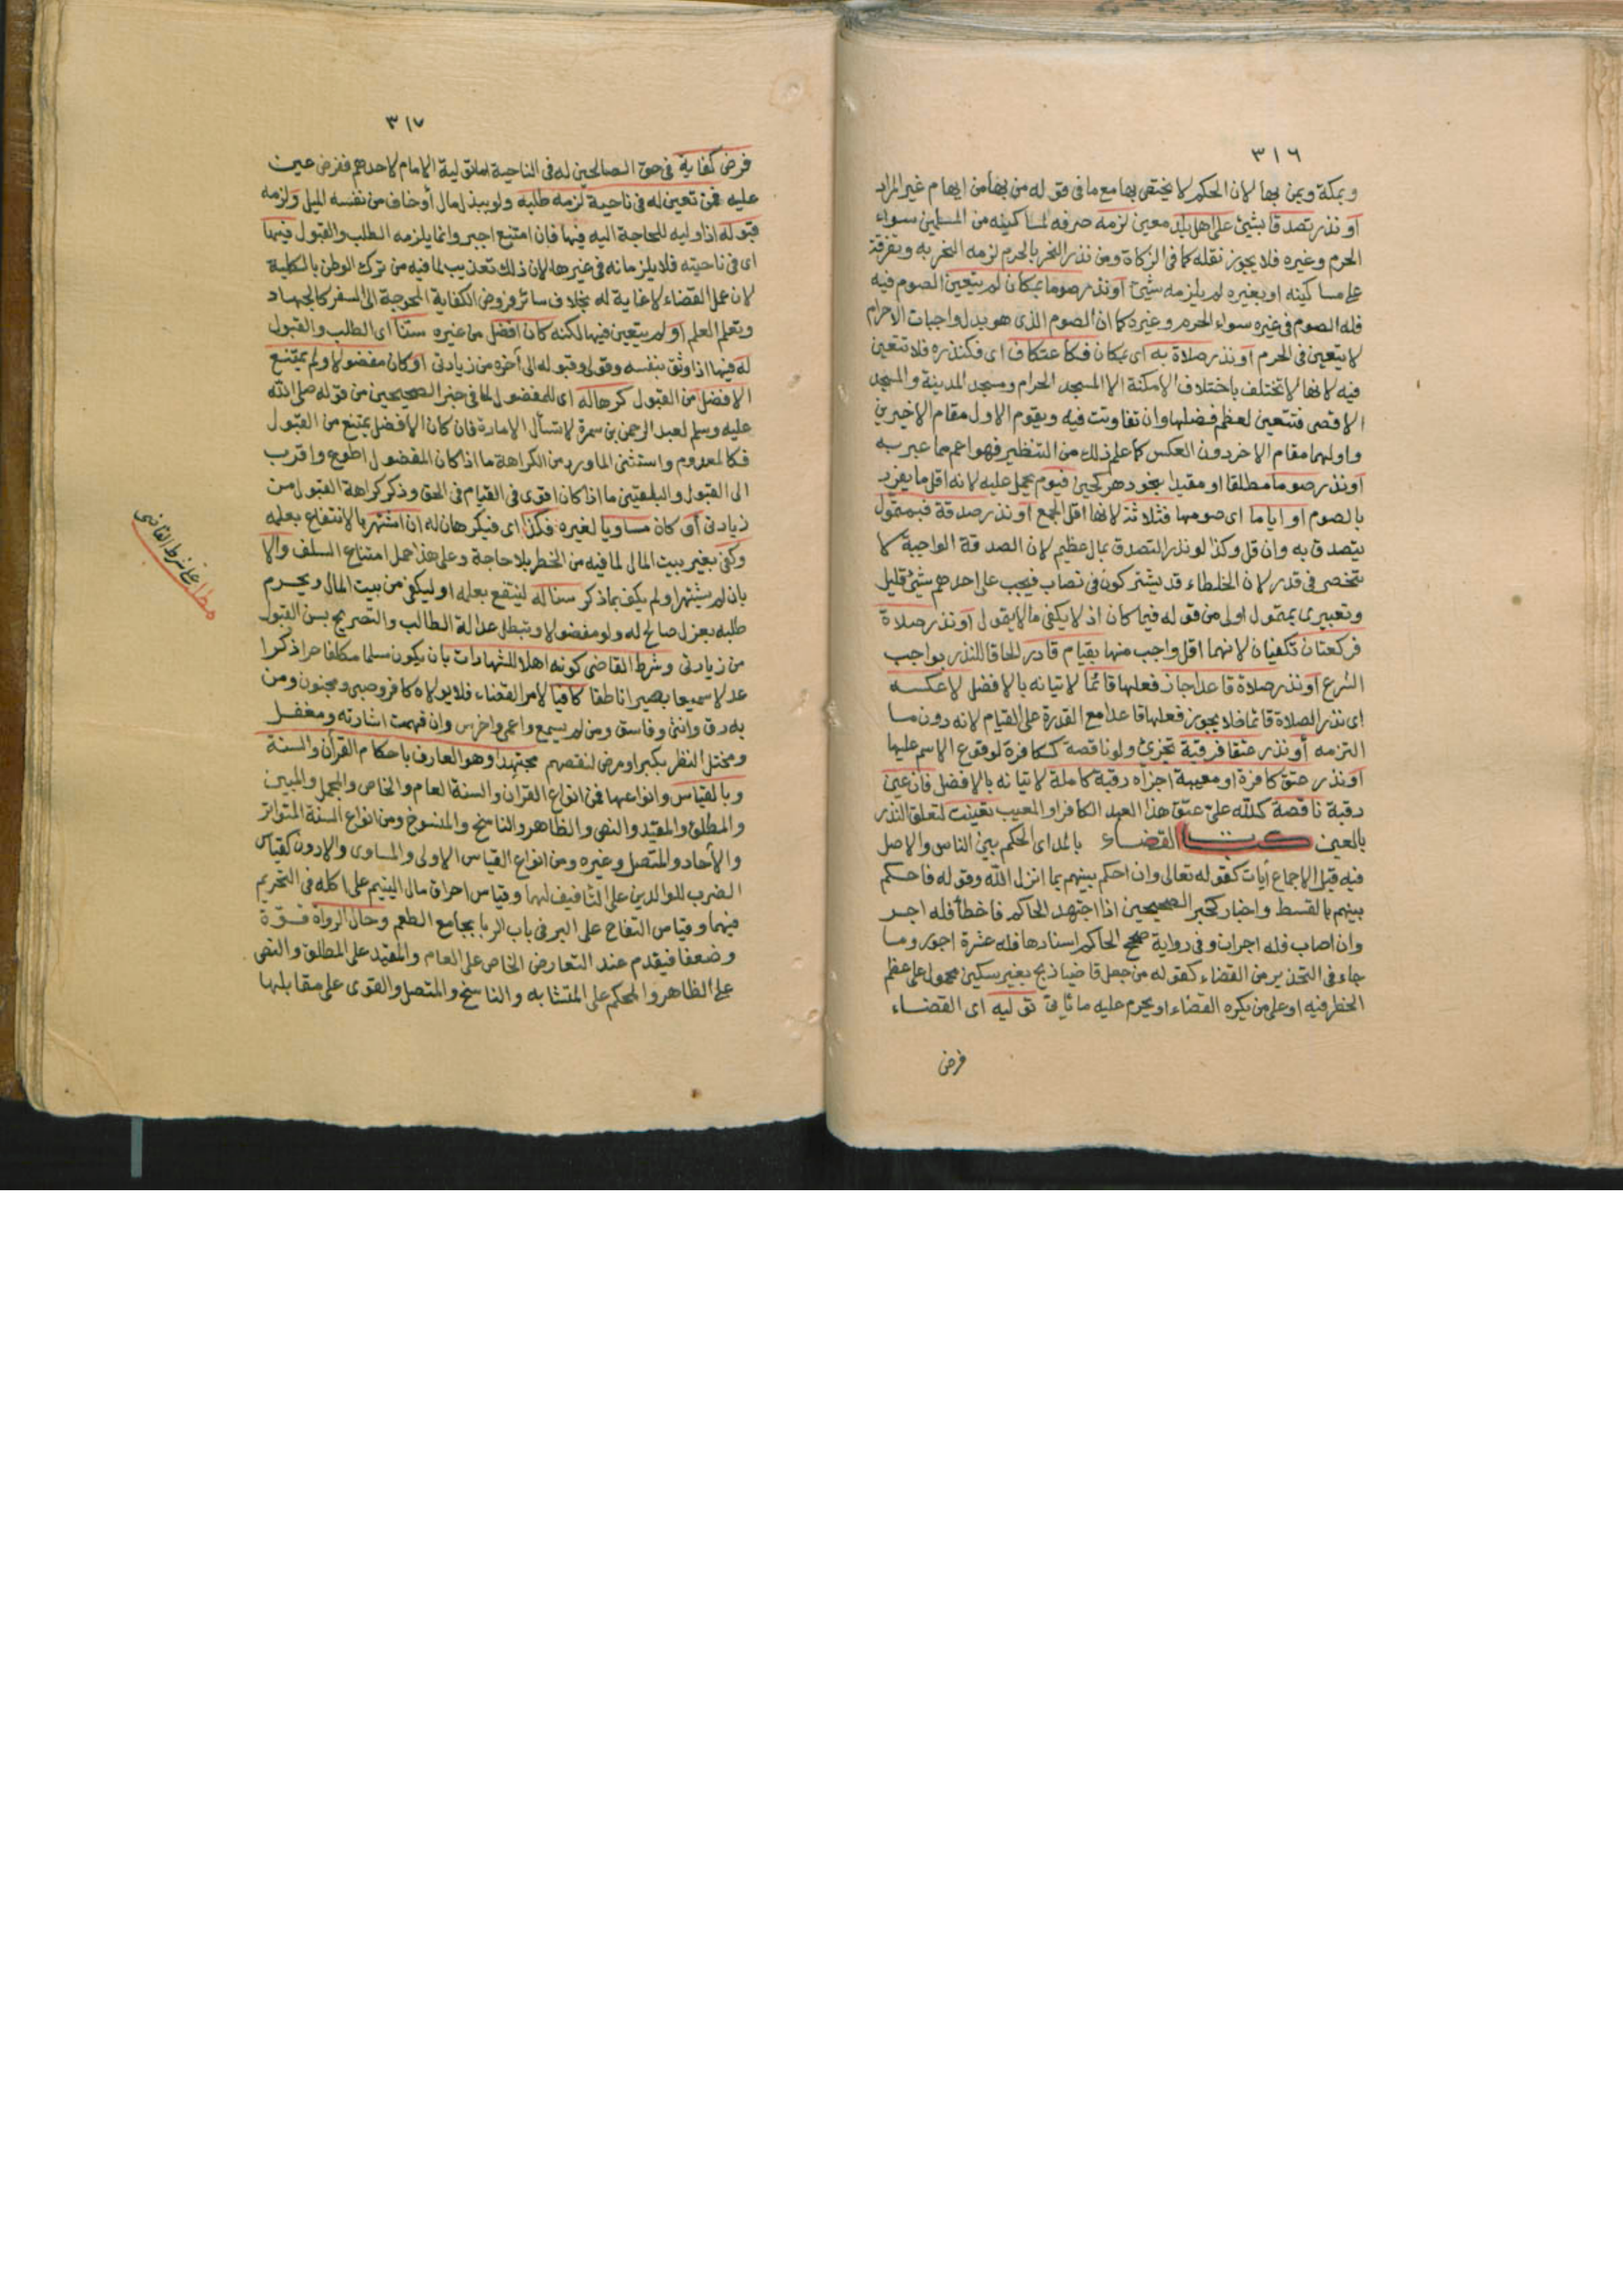 ٣١٦
وبمكة وبمن بها لان الحكم لا يختص بها مع ما فى قوله من بها من ايهام غير المراد
او نذر تصدقا بشيئ على اهل بلد معين لزمه صرفه لمساكينه من المسلمين سواء
الحرم وغيره فلا يجوز نقله كما فى الزكاة ومن نذر النحر بالحرم لزمه النحر به وتفرقة
على مساكينه او بغيره لم يلزمه شيئ او نذر صوما بمكان لم يتعين الصوم فيه
فله الصوم فى غيره سواء الحرم وغيره كما ان الصوم الذى هو بدل واجبات الاحرام
لا يتعين فى الحرم او نذر صلاة به اى بمكان فكاعتكاف اى فكنذره فلا تتعين
فيه لانها لا تختلف باختلاف الامكنة الا المسجد الحرام ومسجد المدينة والمسجد
الاقصى فتتعين لعظم فضلها وان تفاوتت فيه ويقوم الاول مقام الاخيرين
واولهما مقام الاخر دون العكس كما علم ذلك من التنظير فهو اعم مما عبر به
او نذر صوما مطلقا او مقيدا بنحو دهر كحين فيوم يحمل عليه لانه اقل ما يفرد
بالصوم او اياما اى صومها فثلاثة لانها اقل الجمع او نذر صدقة فبمتمول
يتصدق به وان قل وكذا لو نذر التصدق بمال عظيم لان الصدقة الواجبة لا
تنحصر فى قدر لان الخلطاء قد يشتركون فى نصاب فيجب على احدهم شيئ قليل
وتعبيرى بمتمول اولى من قوله فبما كان اذ لا يكفى ما لا يتمول او نذر صلاة
فركعتان تكفيان لانهما اقل واجب منها بقيام قادر الحاقا للنذر بواجب
الشرع او نذر صلاة قاعدا جاز فعلها قائما لاتيانه بالافضل لا عكسه
اى نذر الصلاة قائما فلا يجوز فعلها قاعدا مع القدرة على القيام لانه دون ما
التزمه او نذر عتقا فرقبة تجزئ ولو ناقصة ككافرة لوقوع الاسم عليها
او نذر عتق كافرة او معيبة اجزاه رقبة كاملة لاتيانه بالافضل فان عين
رقبة ناقصة كلله على عتق هذا العبد الكافر او المعيب تعينت لتعلق النذر
بالعين كتاب القضاء بالمد اى الحكم بين الناس والاصل
فيه قبل الاجماع أيات كقوله تعالى وان احكم بينهم بما انزل الله وقوله فاحكم
بينهم بالقسط واخبار كخبر الصحيحين اذا اجتهد الحاكم فاخطأ فله اجر
وان اصاب فله اجران وفى رواية صحح الحاكم اسنادها فله عشرة اجور وما
جاء فى التحذير من القضاء كقوله من جعل قاضيا ذبح بغير سكين محمول على عظم
الخطر فيه او على من يكره القضاء او يحرم عليه ما يأتى توليه اى القضاء
فرض
٣١٧
فرض كفاية فى حق الصالحين له فى الناحية اما تولية الامام لاحدهم ففرض عين
عليه فمن تعين له فى ناحية لزمه طلبه ولو ببذل مال أو خاف من نفسه الميل ولزمه
قبوله اذا وليه للحاجة اليه فيها فان امتنع اجبر وانما يلزمه الطلب والقبول فيها
اى فى ناحيته فلا يلزمانه فى غيرها لان ذلك تعذيب لما فيه من ترك الوطن بالكلية
لان عمل القضاء لا غاية له بخلاف سائر فروض الكفاية المحوجة الى السفر كالجهاد
وتعلم العلم او لم يتعين فيها لكنه كان افضل من غيره سنا اى الطلب والقبول
له فيها اذا وثق بنفسه وقولى وقبوله الى أخره من زيادتى او كان مفضولا ولم يمتنع
الافضل من القبول كرها له اى للمفضول لما فى خبر الصحيحين من قوله صلى الله
عليه وسلم لعبد الرحمن بن سمرة لا تسأل الامارة فان كان الأفضل يمتنع من القبول
فكالمعدوم واستثنى الماوردى من الكراهة ما اذا كان المفضول اطوع واقرب
الى القبول والبلقينى ما اذا كان اقوى فى القيام فى الحق وذكر كراهة القبول من
زيادتى أو كان مساويا لغيره فكذا اى فيكرهان له ان اشتهر بالانتفاع بعلمه
وكفى بغير بيت المال لما فيه من الخطر بلا حاجة وعلى هذا حمل امتناع السلف والا
بان لم يشتهر او لم يكف بما ذكر سنا له لينتفع بعلمه او ليكفى من بيت المال ويحرم
طلبه بعزل صالح له ولو مفضولا وتبطل عدالة الطالب والتصريح بسن القبول
من زيادتى وشرط القاضى كونه اهلا للشهادات بان يكون مسلما مكلفا حرا ذكرا
عدلا سميعا بصيرا ناطقا كافيا لامر القضاء فلا يولاه كافر وصبى ومجنون ومن
به رق وانثى وفاسق ومن لم يسمع واعمى واخرس وان فهمت اشارته ومغفل
ومختل النظر بكبر او مرض لنقصهم مجتهدا وهو العارف باحكام القرأن والسنة
وبالقياس وانواعها فمن انواع القرأن والسنة العام والخاص والمجمل والمبين
والمطلق والمقيد والنص والظاهر والناسخ والمنسوخ ومن انواع السنة المتواتر
والأحاد والمتصل وغيره ومن انواع القياس الاولى والمساوى والادون كقياس
الضرب للوالدين على التافيف لهما وقياس احراق مال اليتيم على اكله فى التحريم
فيهما وقياس التفاح على البر فى باب الربا بجامع الطعم وحال الرواة قوة
وضعفا فيقدم عند التعارض الخاص على العام والمقيد على المطلق والنص
على الظاهر والمحكم على المتشابه والناسخ والمتصل والقوى على مقابلها
مطلب على شرط القاضى